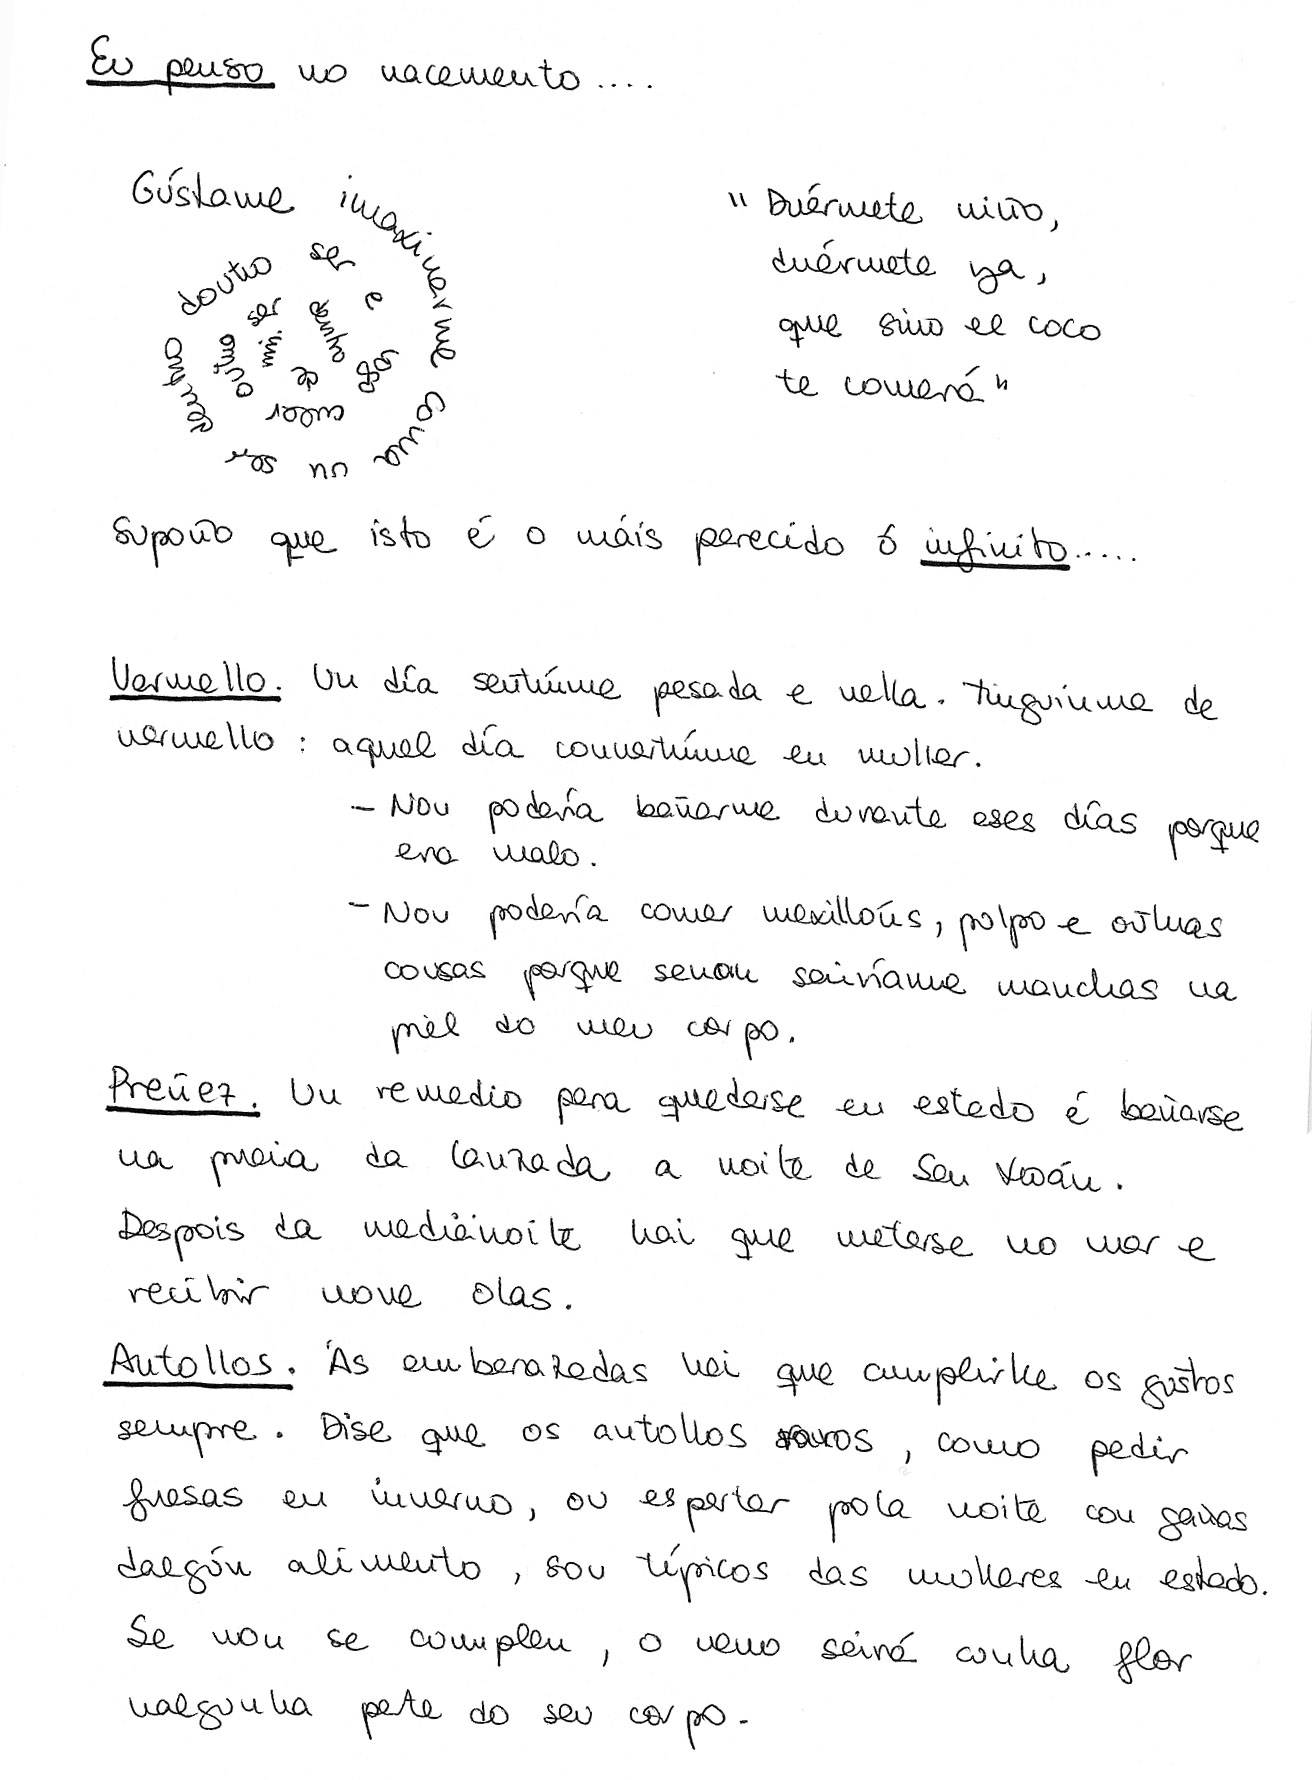 Eu penso no nacemento....
Gústame imaxinarme coma un ser dentro doutro ser e logo
outro ser
"Duérmete niño,
duérmete ya,
que sino el coco
te comerá"
Supoño que isto é o máis parecido ó infinito.....
Vermello. Un día sentinme pesada e vella. Tinguinme de
vermello: aquel día convertinme en muller.
- Non podería bañarme durante eses días porque
era malo.
- Non podería comer mexillóns, polpo e outras
cousas porque senon sairíanme manchas na
piel do meu corpo.
Preñez. Un remedio para quedarse en estado é bañarse
na praia da Lanzada a noite de San Xoán.
Despois da medianoite hai que meterse no mar e
recibir nove olas.
Antollos. Ás embarazadas hai que cumplirlle os gustos
sempre. Dise que os antollos raros, como pedir
fresas en inverno, ou espertar pola noite con ganas
dalgún alimento, son típicos das mulleres en estado.
Se non se cumplen, o neno seirá cunha flor
nalgunha parte do seu corpo.